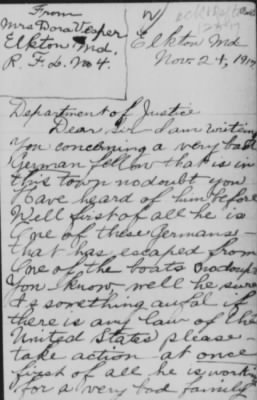 From
Mrs Dora Vesper
Elkton Md.
R. F. D. No 4.
Elkton Md
Nov. 24, 1917
Department of Justice
Dear sir I am writing
you concerning a very bad
German fellow that is in
this town no doubt you
have heard of him before
Well first of all he is
one of these Germans
that has escaped from
one of the boats no doubt
you know well he sure
is something awful if
there is any law of the
United States please
take action at once
first of all he is working
for a very bad family